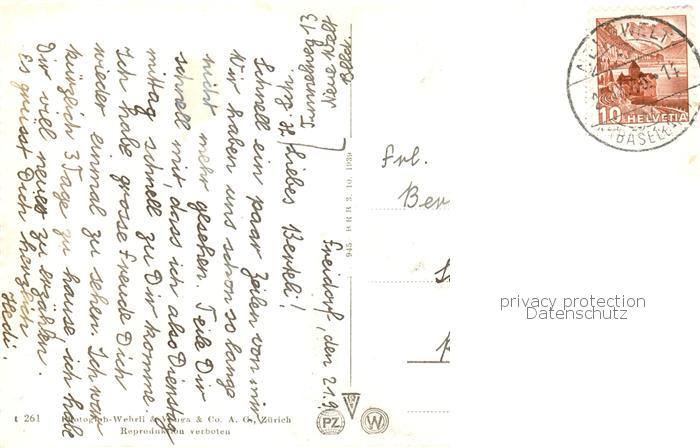 Freidorf, den 21.9.
Liebes Berteli!
Schnell ein paar Zeilen von mir
Wir haben uns schon so lange
nicht mehr gesehen. Teile Dir
schnell mit, dass ich also Dienstag
mittag schnell zu Dir komme.
Ich habe grosse Freude Dich
wieder einmal zu sehen. Ich war
kürzlich 3 Tage zu hause, ich habe
Dir viel neues zu erzählen.
Es grüsst Dich herzlich
Hedi.
945 BRB 3. 10. 1939
Frl.
Ber
10 HELVETIA
NEUEWELT
(BASELLAND)
privacy protection
Datenschutz
t 261
Photoglob-Wehrli & Vouga & Co. A. G., Zürich
Reproduktion verboten
PZ
W